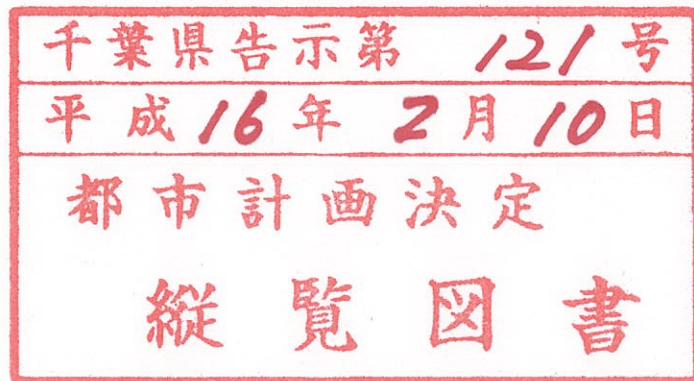 千葉県告示第 121 号
平成 16 年 2 月 10 日
都市計画決定
縦覧図書